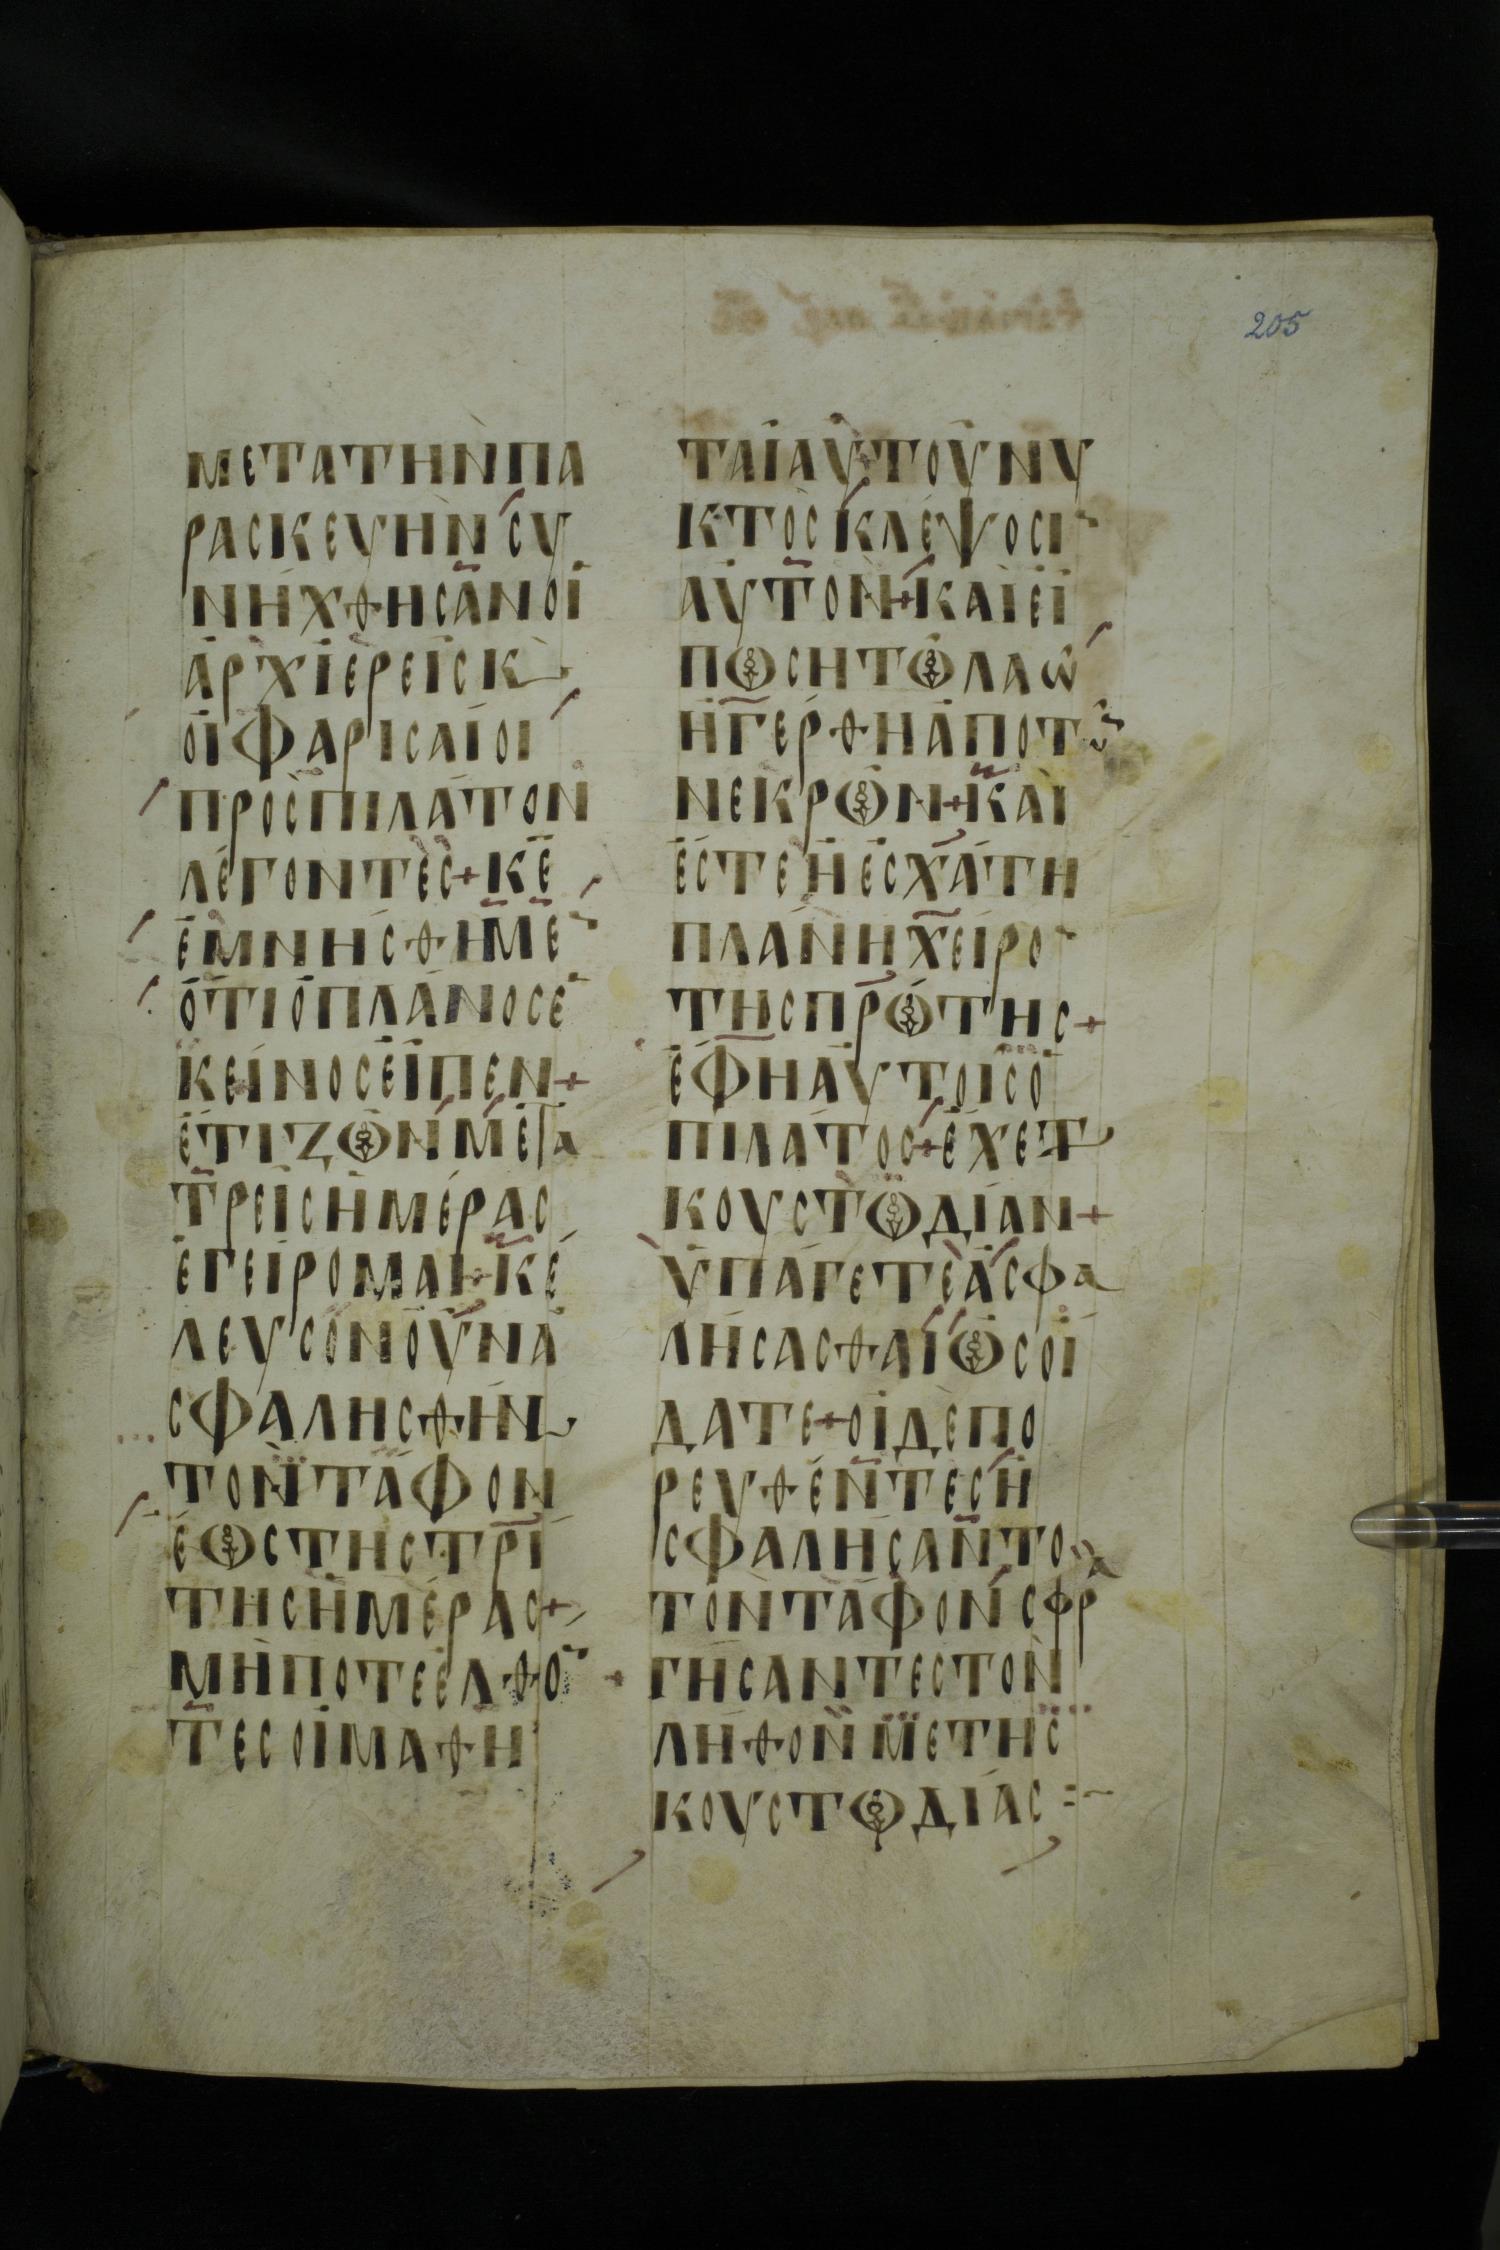 205
ΜΕΤΑΤΗΝΠΑ
ΡΑСΚΕΥΗΝСΥ
ΝΗΧΘΗСΑΝΟΙ
ΑΡΧΙΕΡΕΙСΚ
ΟΙΦΑΡΙСΑΙΟΙ
ΠΡΟСΠΙΛΑΤΟΝ
ΛΕΓΟΝΤΕС+ΚΕ
ΕΜΝΗСΘΗΜΕ
ΟΤΙΟΠΛΑΝΟСΕ
ΚΕΙΝΟСΕΙΠΕΝ+
ΕΤΙΖΩΝΜΕΤΑ
ΤΡΕΙСΗΜΕΡΑС
ΕΓΕΙΡΟΜΑΙ+ΚΕ
ΛΕΥСΟΝΟΥΝΑ
СΦΑΛΗСΘΗΝ
ΤΟΝΤΑΦΟΝ
ΕΩСΤΗСΤΡΙ
ΤΗСΗΜΕΡΑС+
ΜΗΠΟΤΕΕΛΘΟ
ΤΕСΟΙΜΑΘΗ
ΤΑΙΑΥΤΟΥΝΥ
ΚΤΟСΚΛΕΨΟСΙ
ΑΥΤΟΝ+ΚΑΙΕΙ
ΠΩСΗΤΩΛΑΩ
ΗΓΕΡΘΗΑΠΟΤῶ
ΝΕΚΡΩΝ+ΚΑΙ
ΕСΤΕΗΕСΧΑΤΗ
ΠΛΑΝΗΧΕΙΡΟ
ΤΗСΠΡΩΤΗС+
ΕΦΗΑΥΤΟΙСΟ
ΠΙΛΑΤΟС+ΕΧΕΤ
ΚΟΥСΤΩΔΙΑΝ+
ΥΠΑΓΕΤΕΑСΦΑ
ΛΗСΑСΘΑΙΩСΟΙ
ΔΑΤΕ+ΟΙΔΕΠΟ
ΡΕΥΘΕΝΤΕСΗ
СΦΑΛΗСΑΝΤΟ
ΤΟΝΤΑΦΟΝСΦΡΑ
ΓΗСΑΝΤΕСΤΟΝ
ΛΗΘΟΝΜΕΤΗС
ΚΟΥСΤΩΔΙΑС